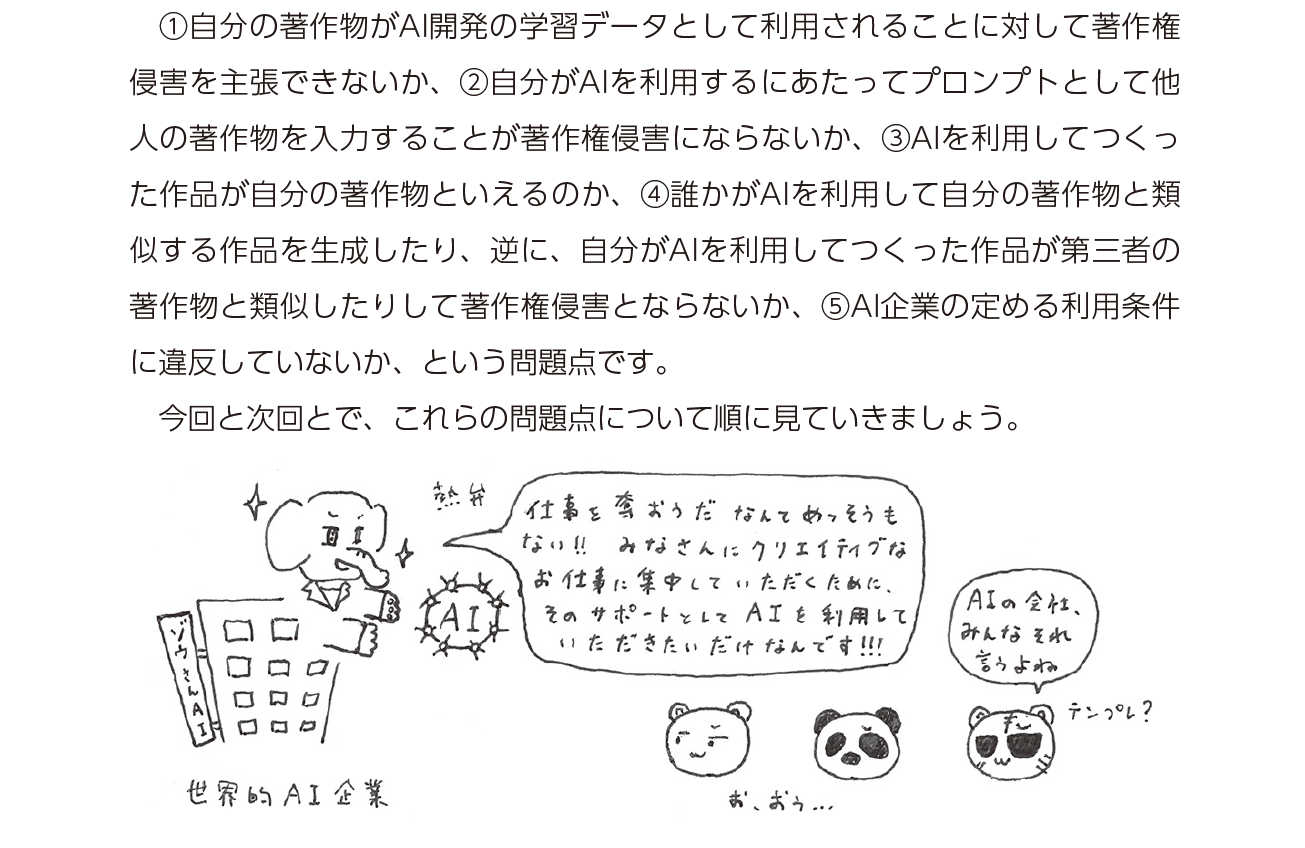 ①自分の著作物がAI開発の学習データとして利用されることに対して著作権
侵害を主張できないか、②自分がAIを利用するにあたってプロンプトとして他
人の著作物を入力することが著作権侵害にならないか、③AIを利用してつくっ
た作品が自分の著作物といえるのか、④誰かがAIを利用して自分の著作物と類
似する作品を生成したり、逆に、自分がAIを利用してつくった作品が第三者の
著作物と類似したりして著作権侵害とならないか、⑤AI企業の定める利用条件
に違反していないか、という問題点です。
今回と次回とで、これらの問題点について順に見ていきましょう。
熱弁
仕事を奪おうだなんてめっそうも
ない!! みなさんにクリエイティブな
お仕事に集中していただくために、
そのサポートとしてAIを利用して
いただきたいだけなんです!!!
AI
ゾウさんAI
世界的AI企業
AIの会社、
みんなそれ
言うよね
テンプレ?
お、おう…